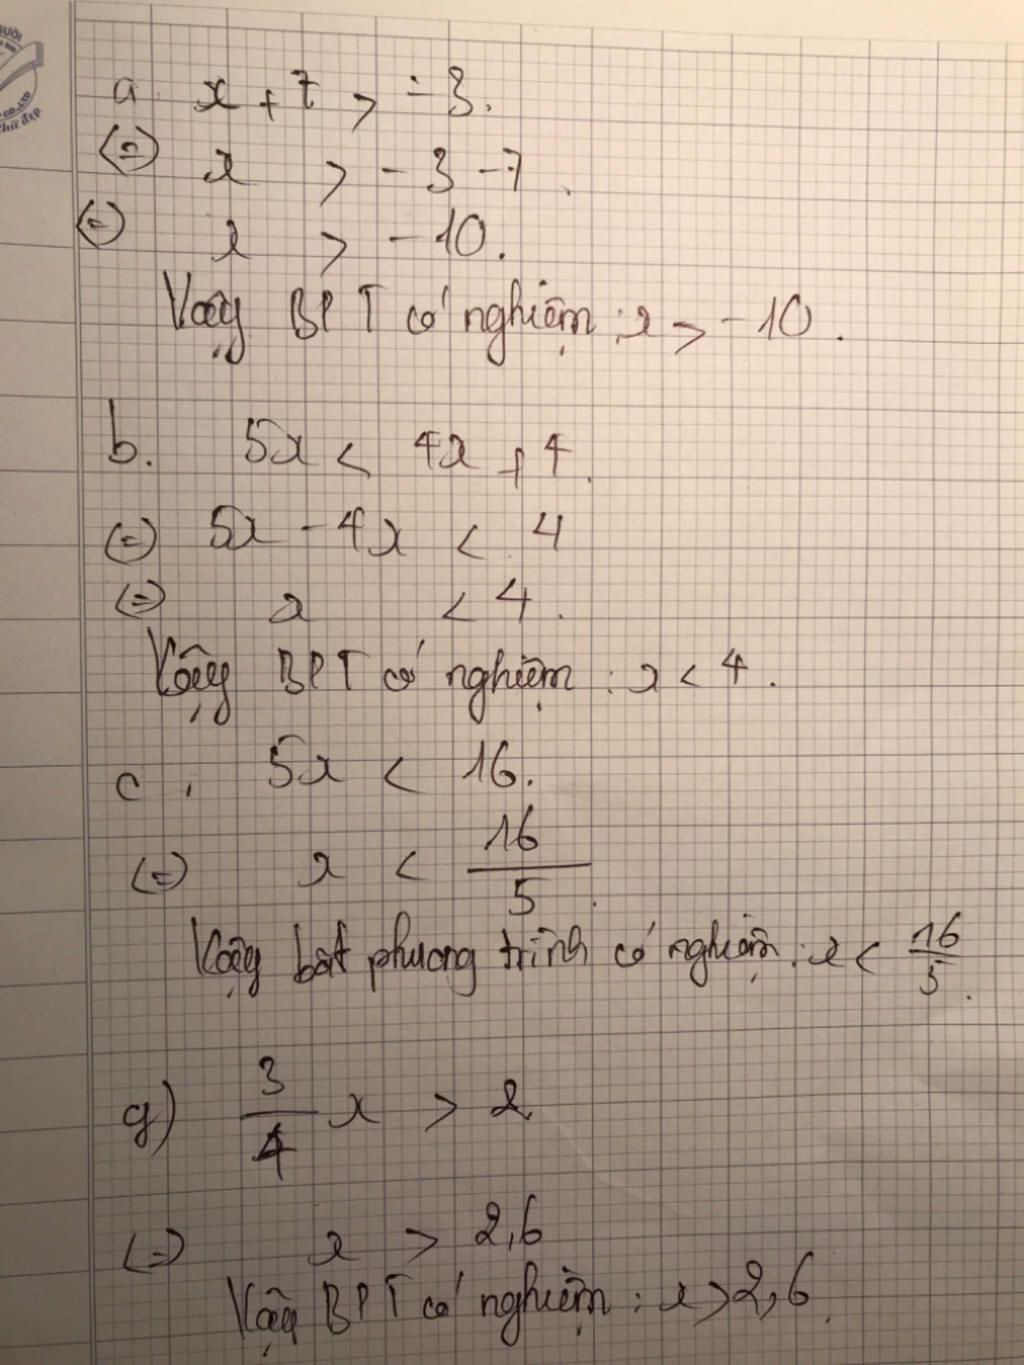 a. x + 7 > -3.
(=) x > -3 -7.
(=) x > -10.
Vậy BPT có nghiệm : x > -10.
b. 5x < 4x + 4.
(=) 5x - 4x < 4
(=) x < 4.
Vậy BPT có nghiệm : x < 4.
c. 5x < 16.
(=) x < 16/5.
Vậy bất phương trình có nghiệm : x < 16/5.
g) 3/4 x > 2
(=) x > 2,6
Vậy BPT có nghiệm : x > 2,6.